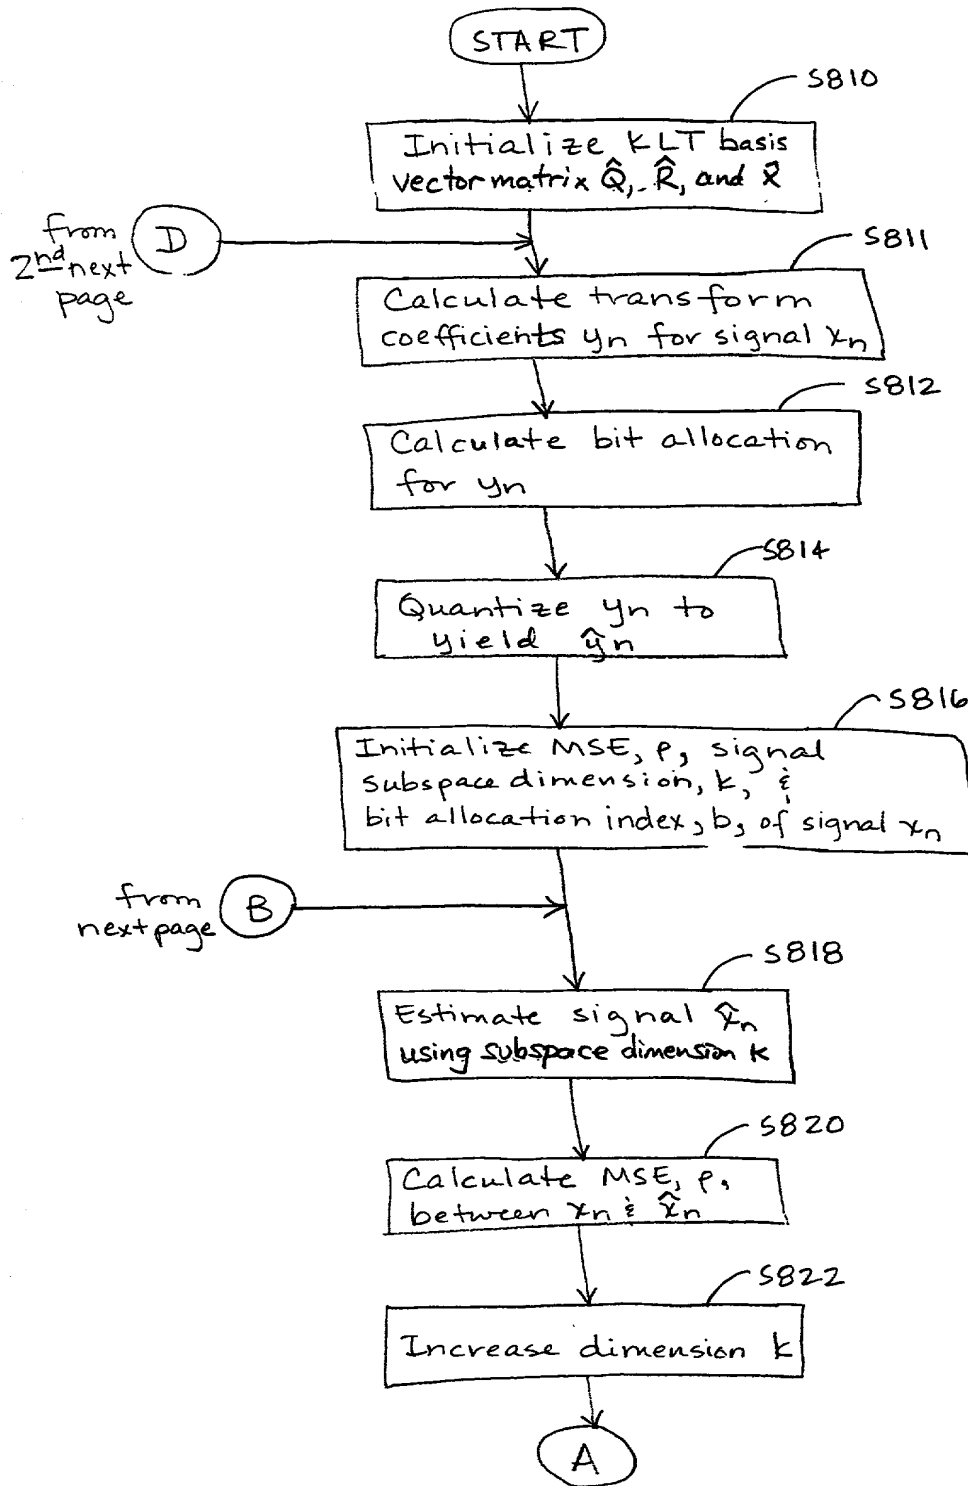 START
S810
Initialize KLT basis
vector matrix Q̂, R̂, and x̂
from
2nd next
page
D
S811
Calculate transform
coefficients yn for signal xn
S812
Calculate bit allocation
for yn
S814
Quantize yn to
yield ŷn
S816
Initialize MSE, ρ, signal
subspace dimension, k, &
bit allocation index, b, of signal xn
from
next page
B
S818
Estimate signal x̂n
using subspace dimension k
S820
Calculate MSE, ρ,
between xn & x̂n
S822
Increase dimension k
A